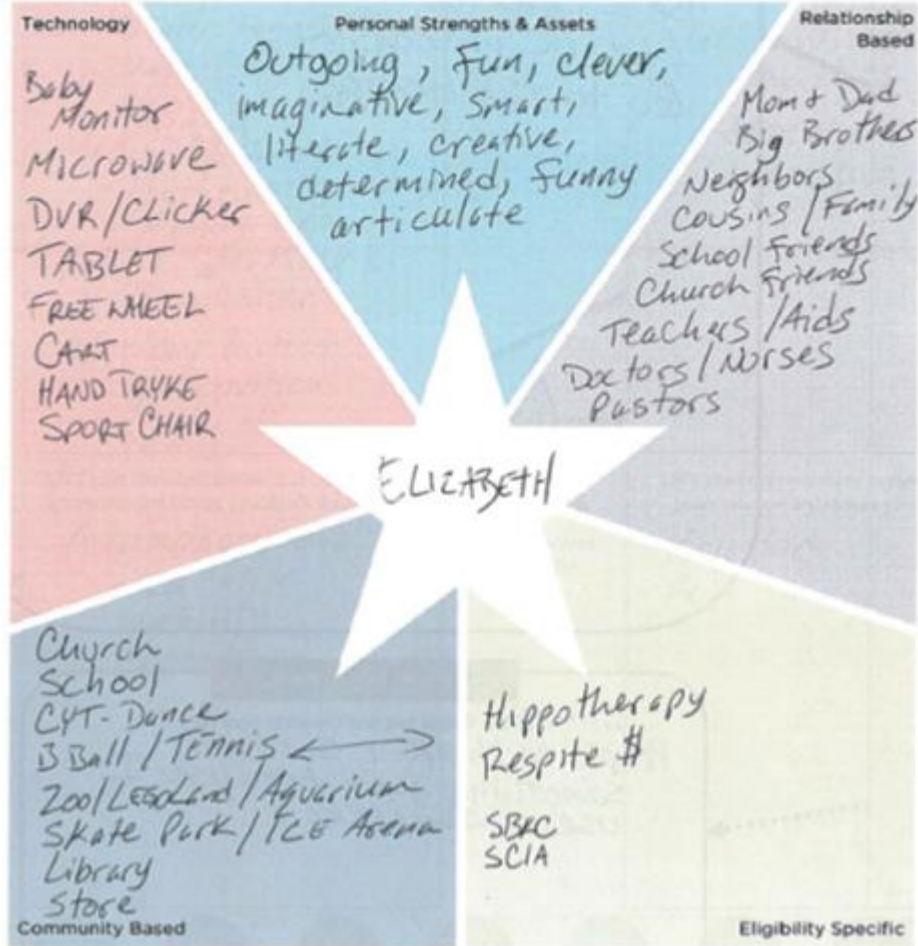 Technology
Baby
Monitor
MICROWAVE
DVR/CLICKER
TABLET
FREE WHEEL
CART
HAND TRYKE
SPORT CHAIR
Personal Strengths & Assets
Outgoing, Fun, clever,
imaginative, smart,
literate, creative,
determined, funny
articulate
Relationship
Based
Mom & Dad
Big Brothers
Neighbors
Cousins/Family
School friends
Church friends
Teachers/Aids
Doctors/Nurses
Pastors
ELIZABETH
Church
School
CYT-Dance
BBall/Tennis
Zoo/LEGOLand/Aquarium
Skate Park/ICE Arena
Library
Store
Community Based
Hippotherapy
Respite $
SBRC
SCIA
Eligibility Specific